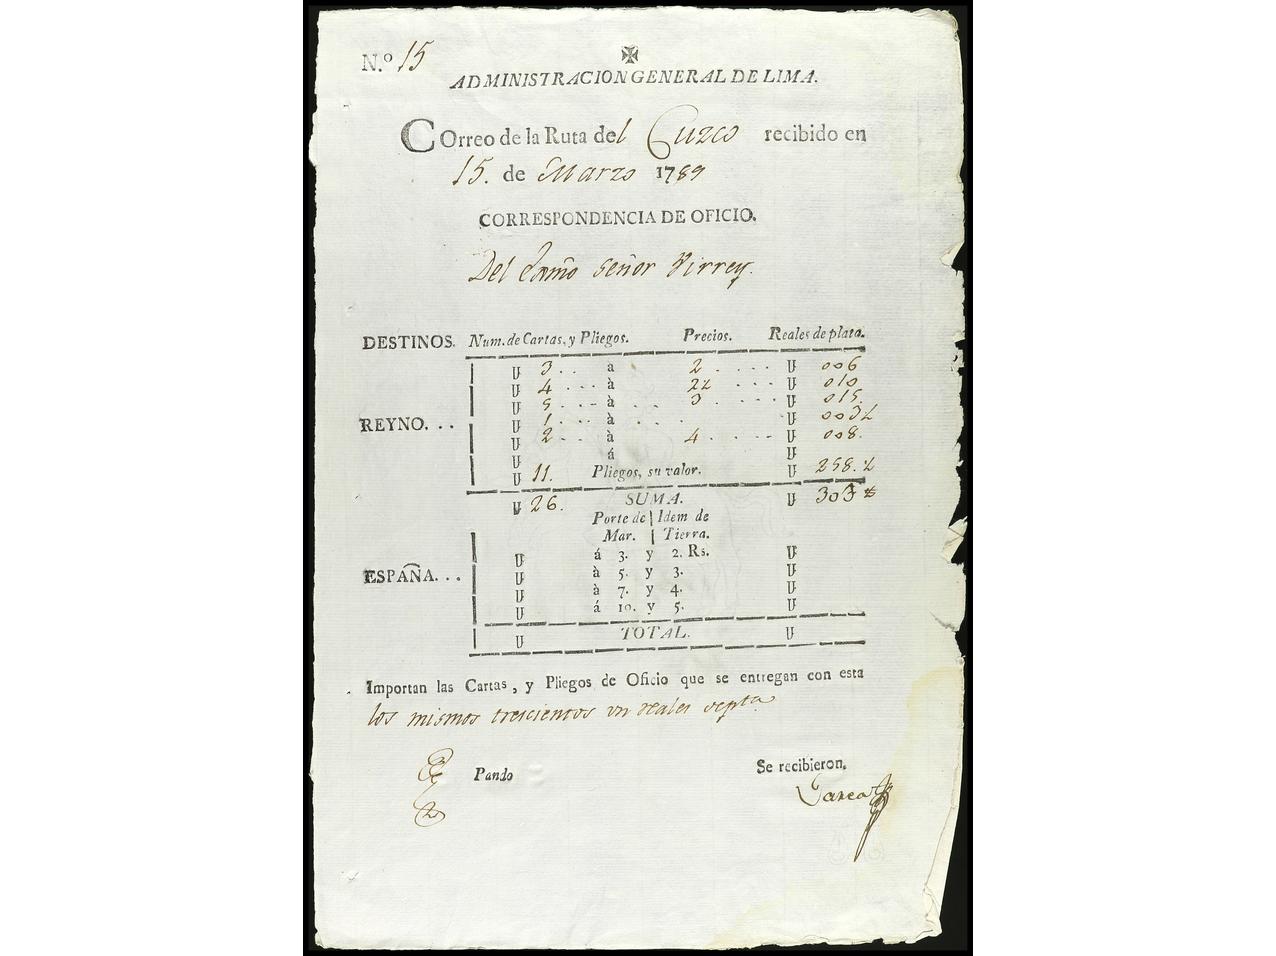 N.º 15
ADMINISTRACION GENERAL DE LIMA.
COrreo de la Ruta del Cuzco recibido en
15. de Marzo 1789
CORRESPONDENCIA DE OFICIO.
Del Señor Virrey.
DESTINOS. Num. de Cartas, y Pliegos. Precios. Reales de plata.
3 . . a 2 . . . . . 006
4 . . . à 2½ . . . 010
5 . . . à . . . 3 . . . . 015.
REYNO. . . 1 . . . à . . . 003½
2 . . . à 4 . . . . 008.
á
11. Pliegos, su valor. 258.½
26. SUMA. 303
Porte de | Idem de
Mar. | Tierra.
á 3. y 2. Rs.
ESPAÑA. . . à 5. y 3.
à 7. y 4.
á 10. y 5.
TOTAL.
Importan las Cartas, y Pliegos de Oficio que se entregan con esta
los mismos trescientos un reales
Pando Se recibieron.